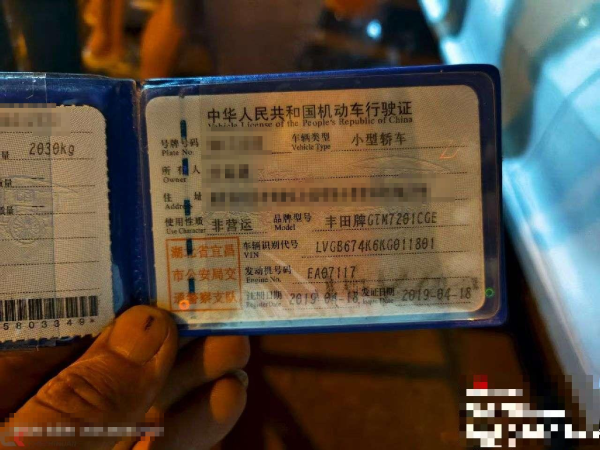 量 2030kg
量
量
中华人民共和国机动车行驶证
Vehicle License of the People's Republic of China
号牌号码 车辆类型 小型轿车
Plate No Vehicle Type
所有人
Owner
住址
Address
使用性质 非营运 品牌型号 丰田牌GTM7201CGE
Use Character Model
湖北省宜昌
市公安局交
通警察支队
车辆识别代号 LVGB674K6KG011801
VIN
发动机号码 EA07117
注册日期 2019-04-18 发证日期 2019-04-18
Register Date Issue Date